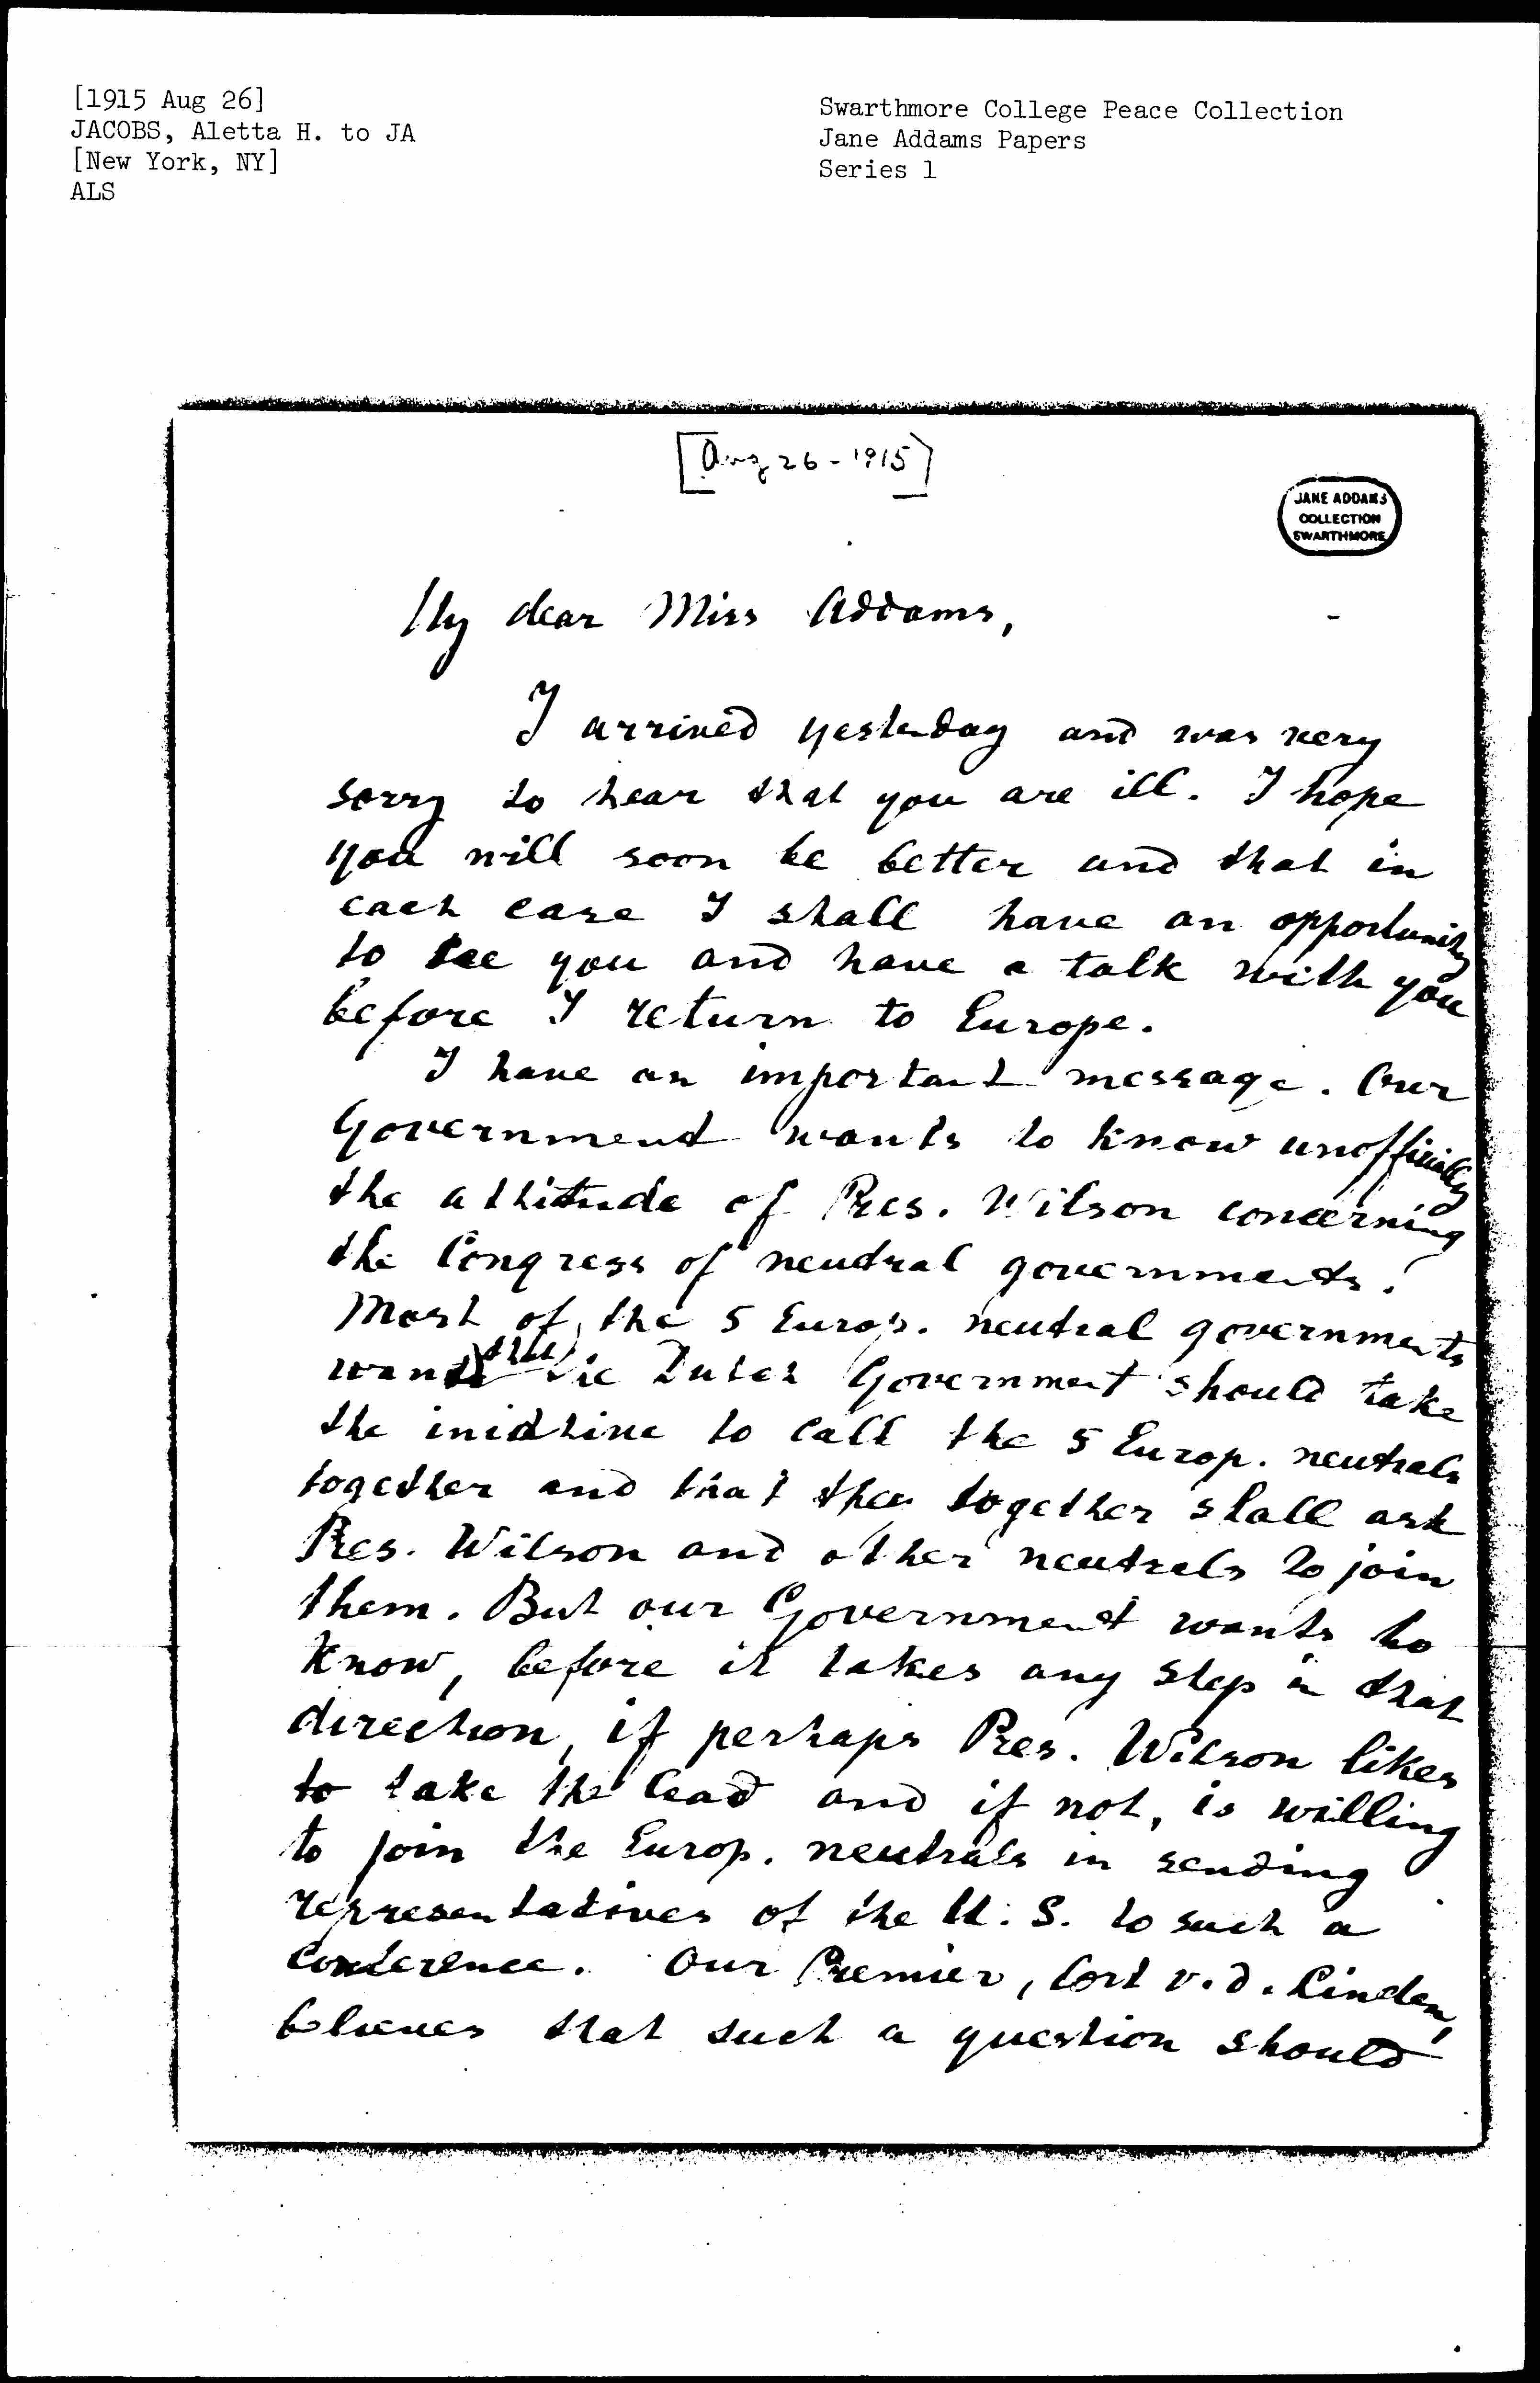 [1915 Aug 26]
JACOBS, Aletta H. to JA
[New York, NY]
ALS
Swarthmore College Peace Collection
Jane Addams Papers
Series 1
[Aug 26 - 1915]
JANE ADDAMS
COLLECTION
SWARTHMORE
My dear Miss Addams,
I arrived yesterday and was very
sorry to hear that you are ill. I hope
you will soon be better and that in
each case I shall have an opportunity
to see you and have a talk with you
before I return to Europe.
I have an important message. Our
Government wants to know unofficially
the attitude of Pres. Wilson concerning
the Congress of neutral governments.
Most of the 5 Europ. neutral governments
want that Dutch Government should take
the iniative to call the 5 Europ. neutrals
together and that they together shall ask
Pres. Wilson and other neutrals to join
them. But our Government wants to
know, before it takes any step in that
direction, if perhaps Pres. Wilson likes
to take the lead and if not, is willing
to join the Europ. neutrals in sending
representatives of the U.S. to such a
conference. Our Premier, Cort v.d. Linden,
believes that such a question should